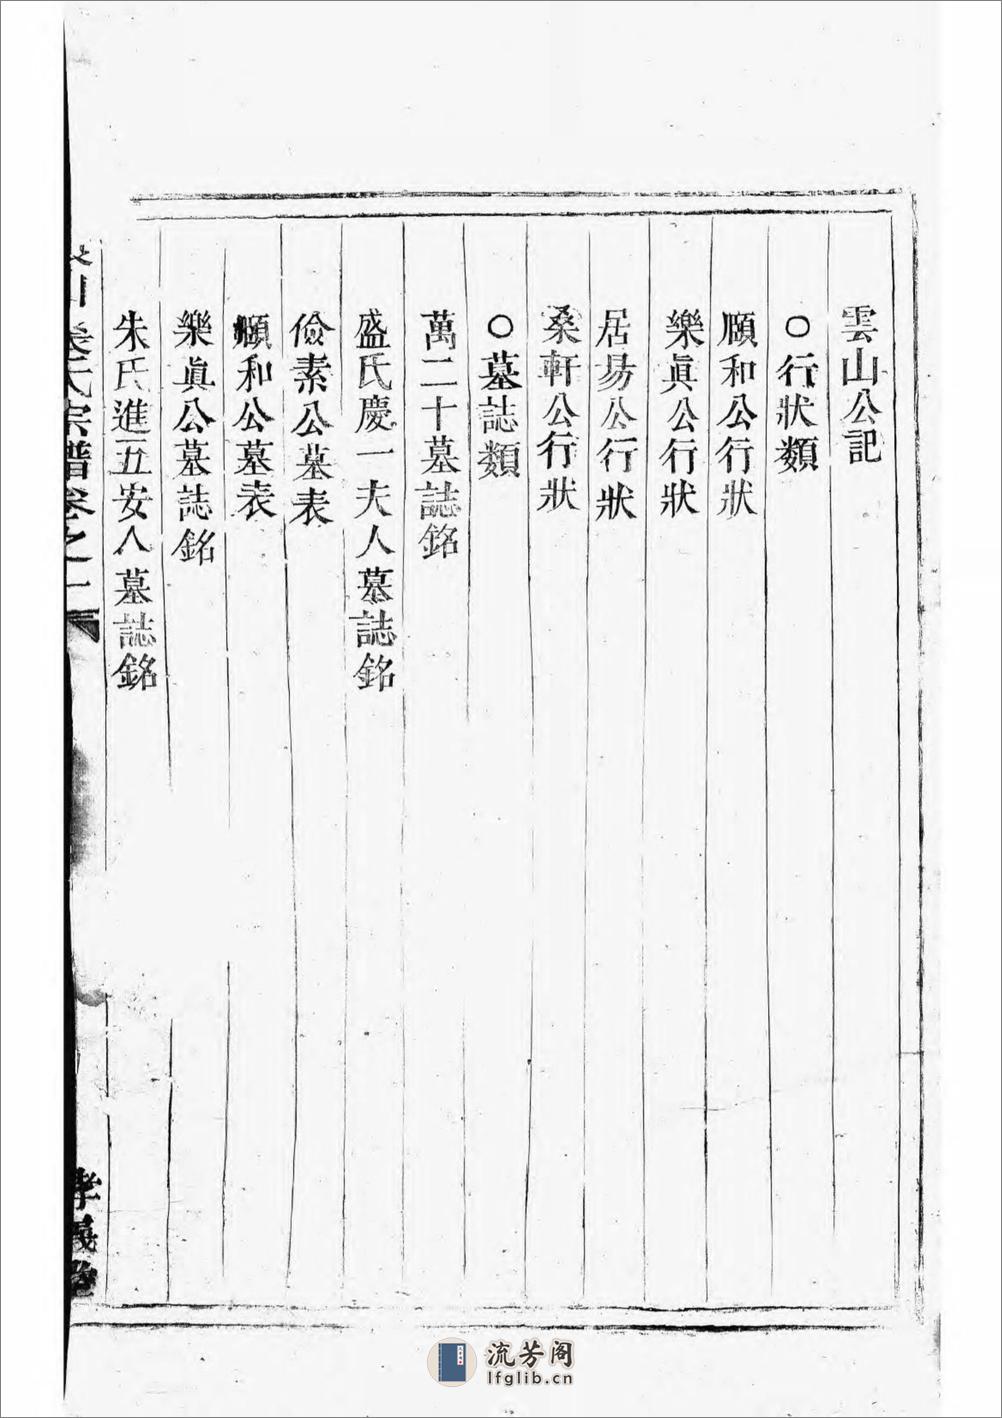 雲山公記
○行狀類
頤和公行狀
樂眞公行狀
居易公行狀
桑軒公行狀
○墓誌類
萬二十墓誌銘
盛氏慶一夫人墓誌銘
儉素公墓表
頤和公墓表
樂眞公墓誌銘
朱氏進五安人墓誌銘
氏宗譜卷之一
孝義堂
流芳阁
lfglib.cn